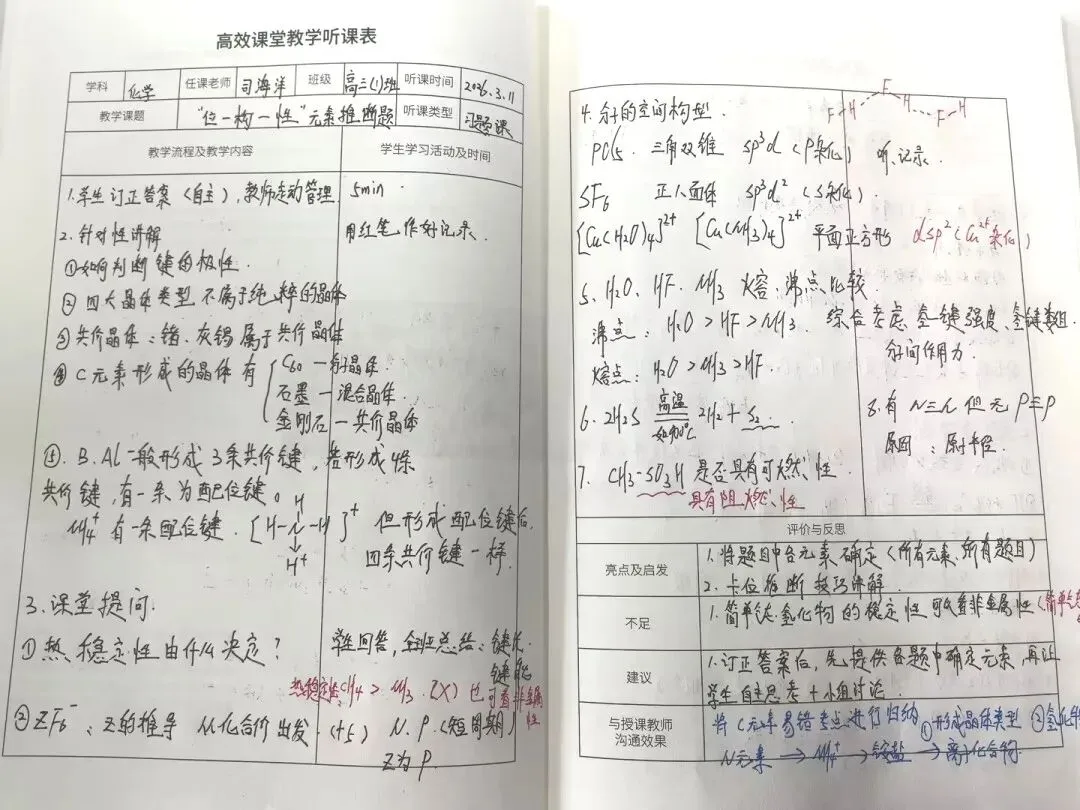 高效课堂教学听课表
学科 化学 任课老师 司海洋 班级 高二(1)班 听课时间 2026.3.11
教学课题 "位一构一性"元素推断题 听课类型 习题课
教学流程及教学内容 学生学习活动及时间
1.学生订正答案(自主),教师走动管理. 5min.
2.针对性讲解 用红笔作好记录.
①如何判断键的极性.
②四大晶体类型.不属于纯粹的晶体
③共价晶体:锗.灰锡属于共价晶体
④C元素形成的晶体有 C60—分子晶体.
石墨—混合晶体.
金刚石—共价晶体
⑤.B.Al一般形成3条共价键,若形成4条
共价键,有一条为配位键。
NH4+有一条配位键.[H-N-H]+ 但形成配位键后,
H
H+
四条共价键一样.
3.课堂提问.
①热稳定性由什么决定? 学生回答,全班总结:键长.
键能
热稳定性:CH4>NH3.(X)也可看非金属性
②ZF6-:Z的推导 从化合价出发.(+5) N.P.(短周期)
Z为P.
4.分子的空间构型.
F H F H F H
PCl5.三角双锥 sp³d(P杂化) 听、记录.
SF6 正八面体 sp³d²(S杂化)
[Cu(H2O)4]2+ [Cu(NH3)4]2+ 平面正方形 dsp²(Cu2+杂化)
5.H2O、HF.NH3熔、沸点比较.
沸点:H2O>HF>NH3.综合考虑氢键强度、氢键数组.
分子间作用力.
熔点:H2O>NH3>HF.
6.2H2S 高温 如900℃ 2H2+S2.
8.有N≡N但无P≡P
原因:原子半径.
7.CH3-SO3H是否具有可燃性.
具有阻燃性
评价与反思
亮点及启发 1.将题目中各元素确定(所有元素、所有题目)
2.卡位推断技巧讲解.
不足 1.简单气态氢化物的稳定性可以看非金属性(简单气态
建议 1.订正答案后,先提供各题中确定元素,再让
学生自主思考+小组讨论.
与授课教师沟通效果 将C元素易错考点进行归纳①形成晶体类型②氢化物
N元素→NH4+→铵盐→离子化合物.